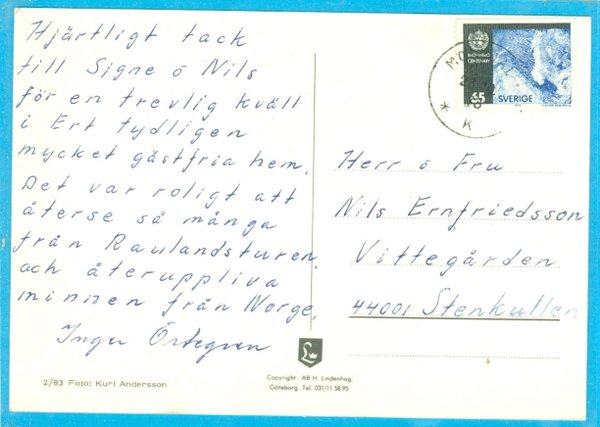 Hjärtligt tack
till Signe o Nils
för en trevlig kväll
i Ert tydligen
mycket gästfria hem.
Det var roligt att
återse så många
från Raulandsturen,
och återuppliva
minnen från Norge,
Inger
2/83 Foto: Kurt Andersson
Copyright: AB H. Lindenhag,
Göteborg. Tel. 031/11 58 95
CENTENARY
65 SVERIGE
K
Herr o Fru
Nils Ernfriedsson
Vittegården
44001 Stenkullen